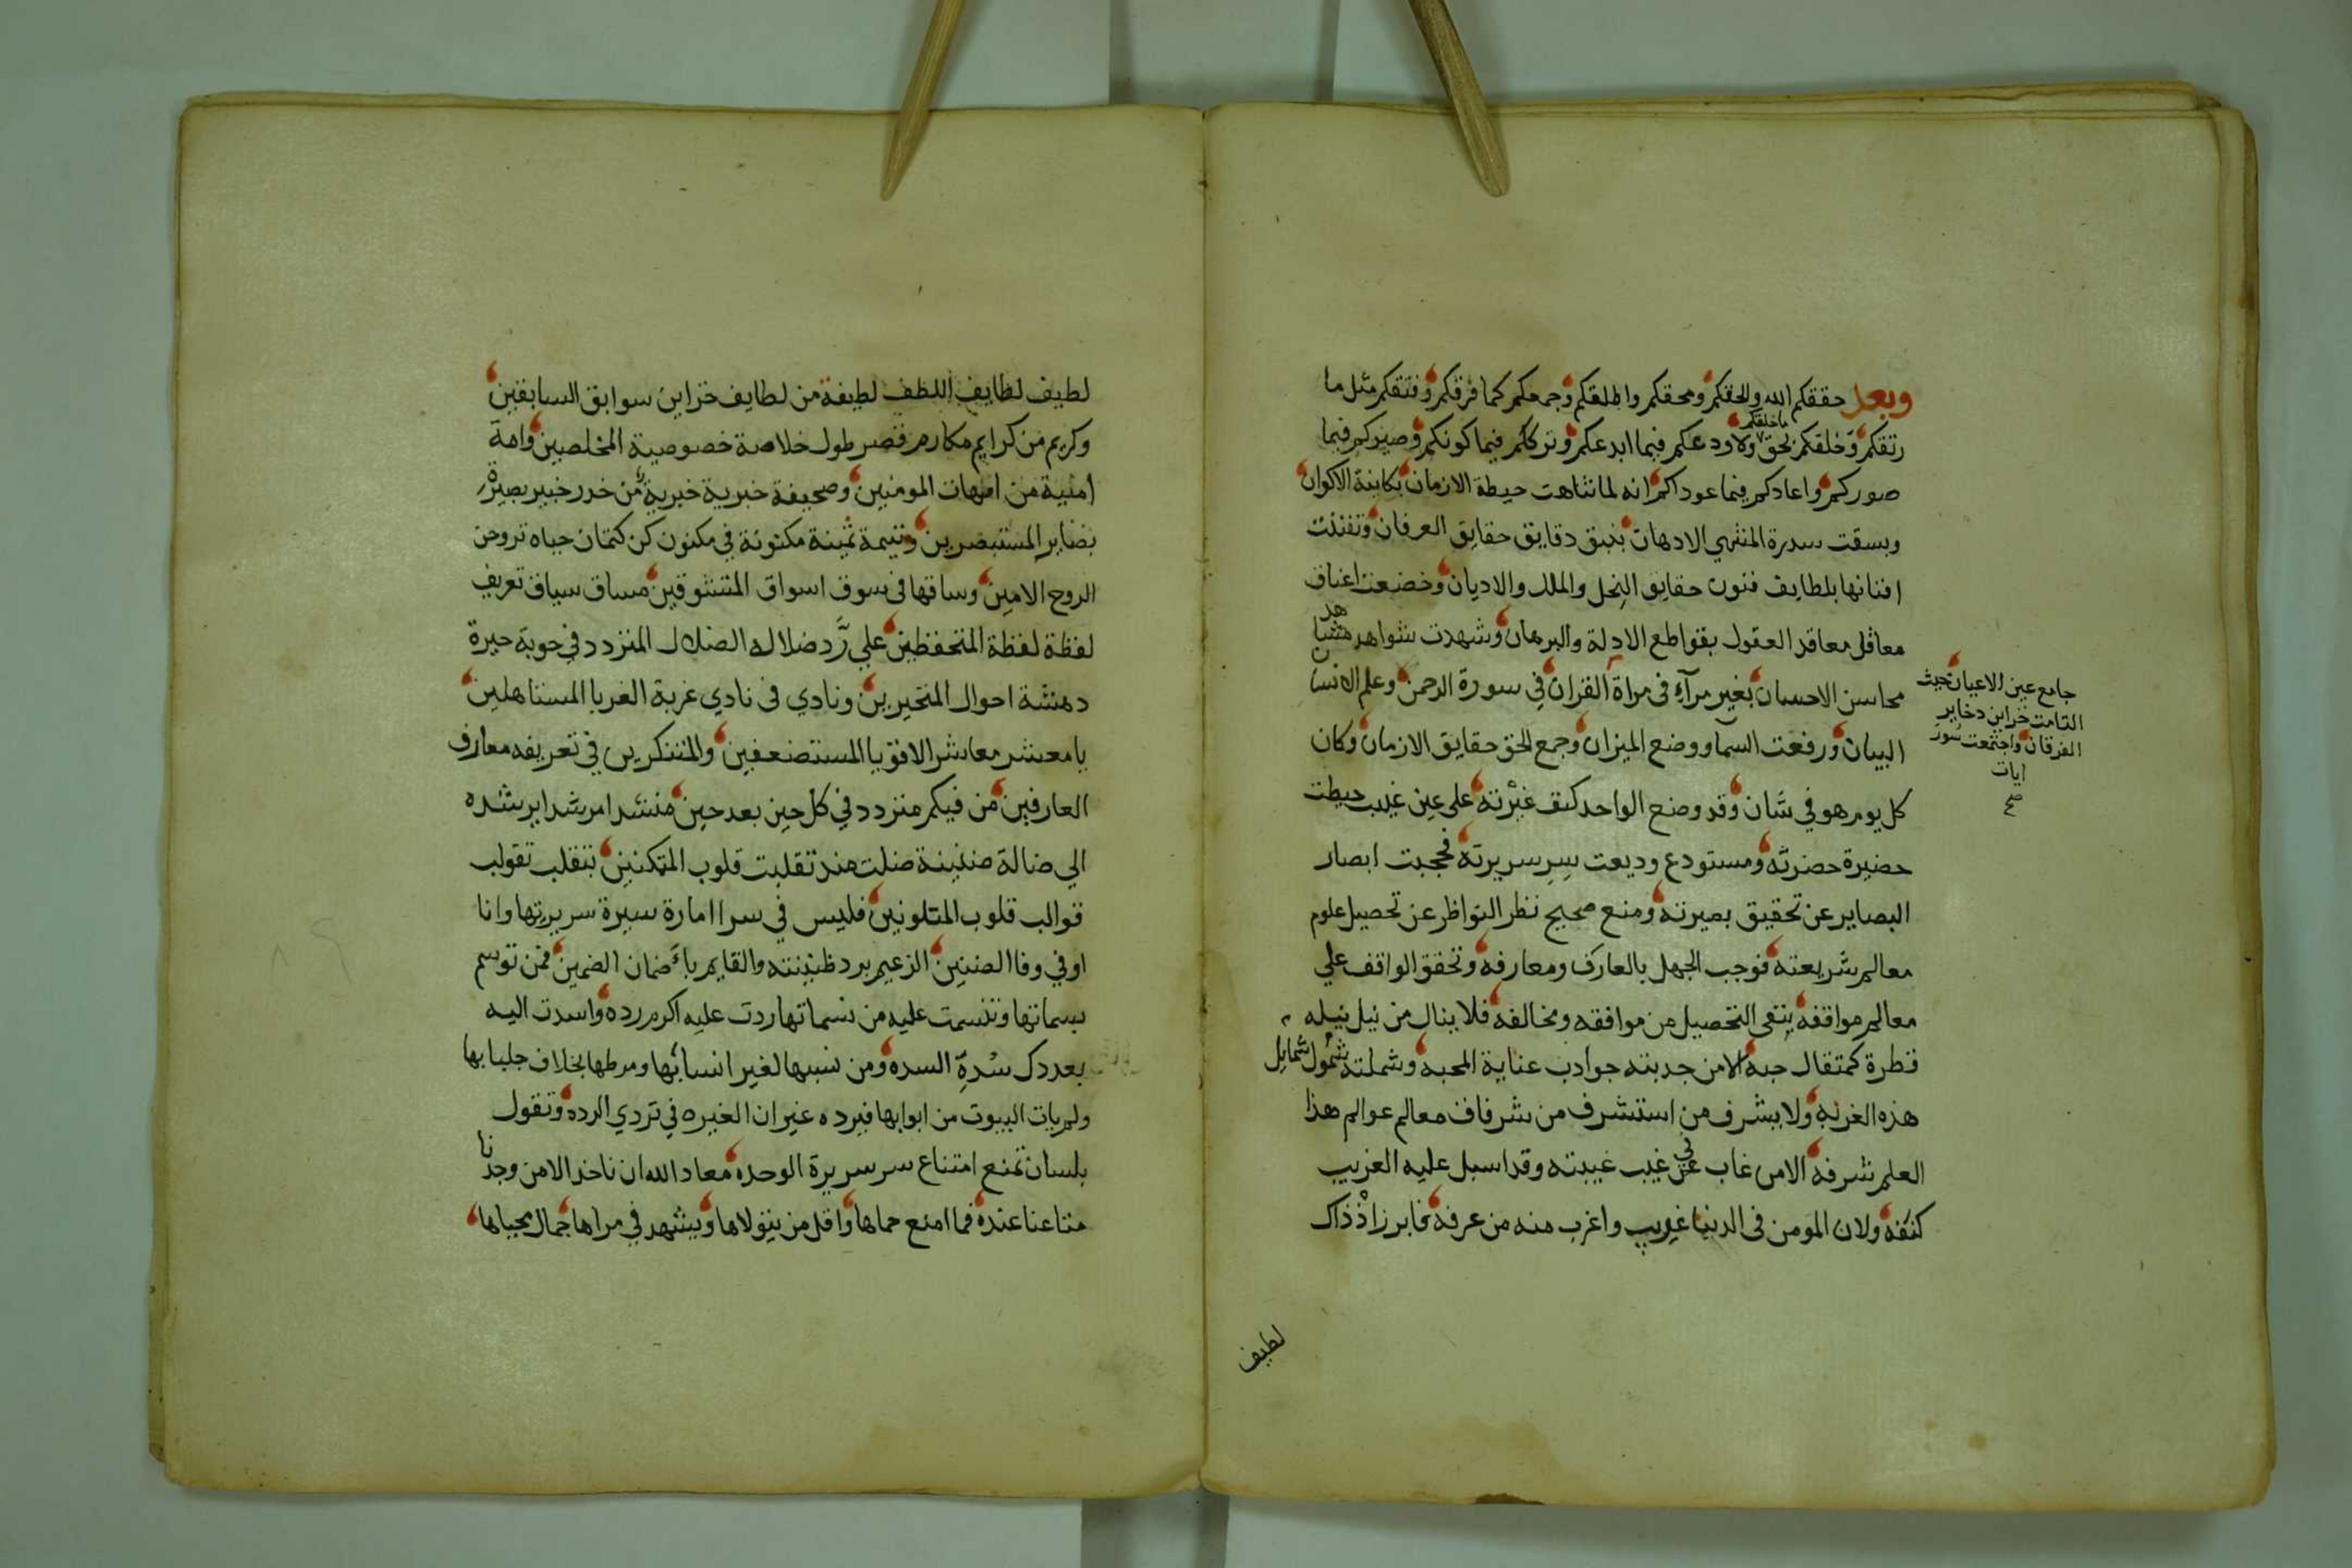 وبعد حققكم الله والحقكم ومحقكم واطلقكم وجمعكم كما فرقكم وفتقكم مثل ما
رتقكم وخلقكم بحق ما خلقكم ولاودعكم فيما ابدعكم وترككم فيما كونكم وصيركم فيما
صوركم واعادكم فيما عوداكم انه لما تناهت حيطة الازمان بكاينة الاكوان
وبسقت سدرة المنتهي الادهان بنبق دقايق حقايق العرفان وتفننت
افنانها بلطايف فنون حقايق النحل والملل والاديان وخضعت اعناق
معاقل معاقد العقول بقواطع الادلة والبرهان وشهدت شواهد مشاهد
محاسن الاحسان بغير مرآء في مراة القران في سورة الرحمن وعلم الانسان
البيان ورفعت السما ووضع الميزان وجمع الحق حقايق الازمان وكان
كل يوم هو في شان وقد وضع الواحد كنف غيرته على عين غيب حيطت
حضيرة حضرته ومستودع وديعت سر سريرته فحجبت ابصار
البصاير عن تحقيق بصيرته ومنع صحيح نظر النواظر عن تحصيل علوم
معالم شريعته فوجب الجهل بالعارف ومعارفه وتحقق الواقف علي
معالم مواقفه بنفى التحصيل من موافقه ومخالفه فلا ينال من نيل نيله
قطرة كمثقال حبه الا من جدبته جوادب عناية المحبه وشملته شمول شمايل
هذه الغربه ولا يشرف من استشرف من شرفات معالم عوالم هذا
العلم شرفه الا من غاب عن في غيب غيبته وقد اسبل عليه الغريب
كنفه ولان المومن في الدنيا غريب واغرب منه من عرفه فابرز اذ ذاك
جامع عين الاعيان حيث
التامت خزاين دخاير
الفرقان واجتمعت سور
ايات
صح
لطيف
لطيف لطايف اللطف لطيفة من لطايف خزاين سوابق السابقين
وكريم من كرايم مكارم قصر طول خلاصة خصوصية المخلصين وامة
امنية من امهات المومنين وصحيفة خبرية خبرية من خدر خبير بصيرة
بصاير المستبصرين ويتيمة ثمينة مكنونة في مكنون كن كتمان حباه تروحن
الروح الامين وساقها في سوق اسواق المتشوقين مساق سياق تعريف
لفظة لفظة المتحفظين علي رد ضلاله الضلال المتردد في حوبة حيرة
دهشة احوال المتحيرين ونادي في نادي غربة الغربا المستاهلين
يا معشر معاشر الاقويا المستضعفين والمتنكرين في تعريفه معارف
العارفين من فيكم متردد في كل حين بعد حين منشدا مرشدا يرشده
الي ضالة ضنينة ضلت مند تقلبت قلوب المتمكنين بتقلب تقولب
قوالب قلوب المتلونين فليس في سرا امارة سيرة سريرتها وانا
اوفي وفا الضنين الزعيم برد ظنينته والقايم باء ضمان الضمين فمن توسم
بسماتها وتنسمت عليه من نسماتها ردت عليه اكرم رده واسدت اليه
بعد دك سدة السده ومن نسبها لغير انسابها ومرطها بخلاف جلبابها
ولم يات البيوت من ابوابها فيرده غيران الغيره في تردي الرده وتقول
بلسان تمنع امتناع سر سريرة الوحده معاد الله ان ناخد الا من وجدنا
متاعنا عنده فما امنع حماها واقل من يتولاها ويشهد في مراها جمال محياها